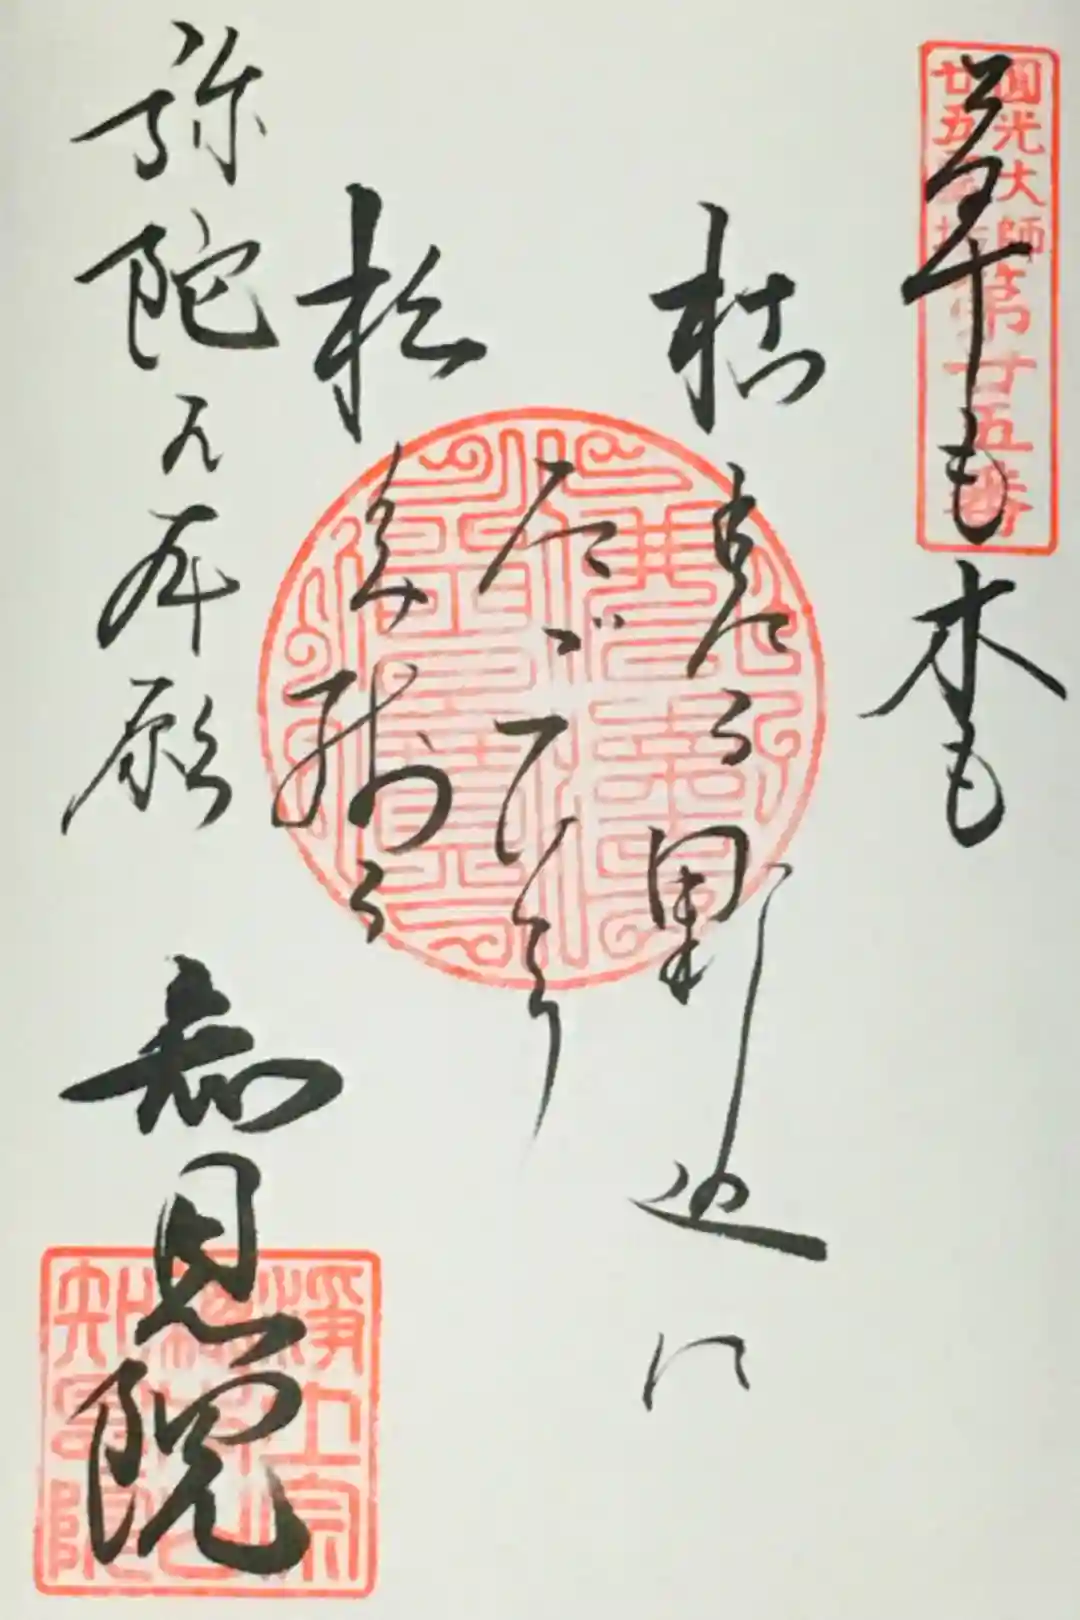 圓光大師
廿五霊場
第廿五番
草も木も
枯れたる野辺に
たゞひとり
松のみ残る
弥陀の本願
知恩院
浄土宗
総本山
知恩院